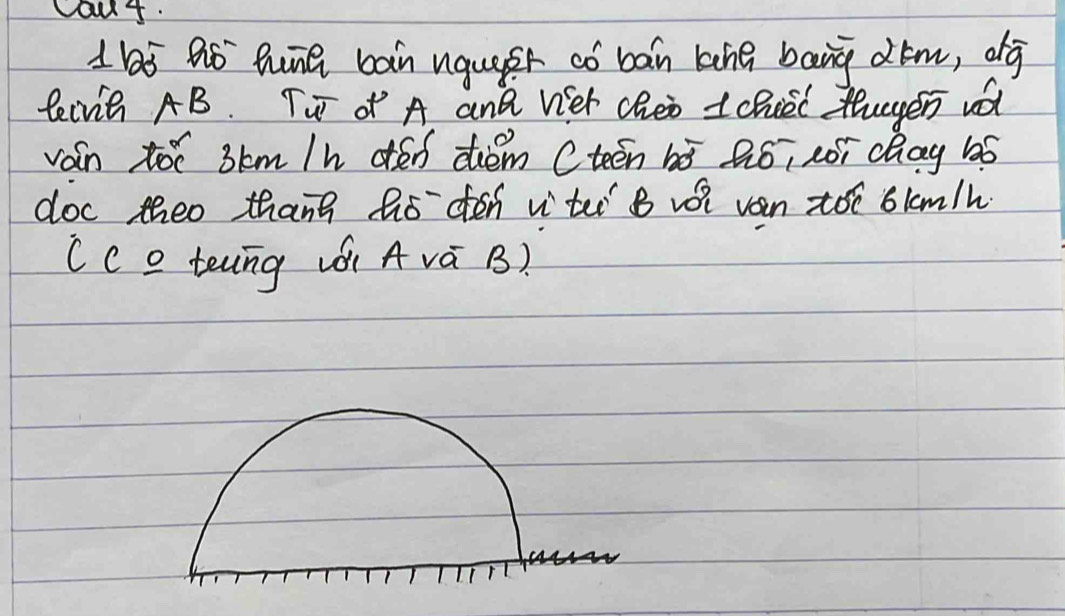 Câu 4.
1 bờ hồ hình bán nguyệt có bán kính bằng 2km, đg
kính AB. Từ đ' A anh việt chèo 1 chiếc thuyền với
vận tốc 3km/h đến điểm C trên bờ hồ, rồi chạy bộ
dọc theo thành hồ đến vị trí B với vận tốc 6km/h.
(C o trùng với A và B).